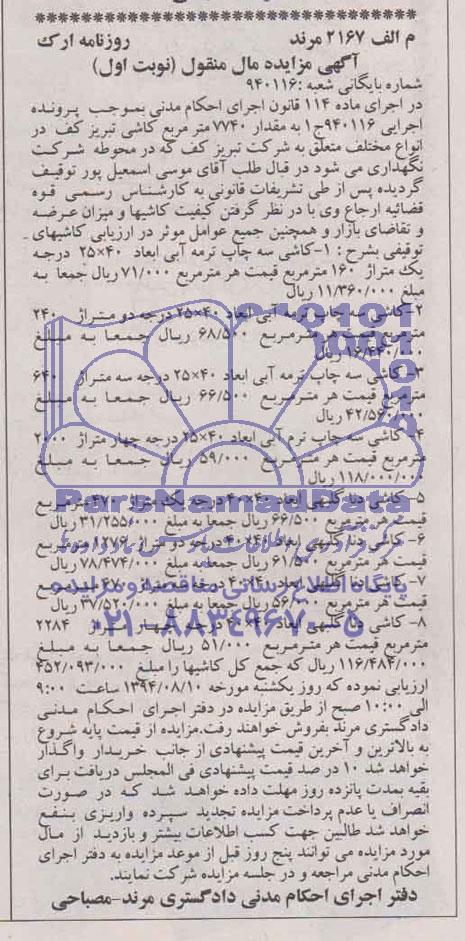 م الف ۲۱۶۷ مرند روزنامه ارک
آگهی مزایده مال منقول (نوبت اول)
شماره بایگانی شعبه :۹۴۰۱۱۶
در اجرای ماده ۱۱۴ قانون اجرای احکام مدنی بموجب پرونده
اجرایی ۹۴۰۱۱۶ج۱ به مقدار ۷۷۴۰ متر مربع کاشی تبریز کف در
انواع مختلف متعلق به شرکت تبریز کف که در محوطه شرکت
نگهداری می شود در قبال طلب آقای موسی اسمعیل پور توقیف
گردیده پس از طی تشریفات قانونی به کارشناس رسمی قوه
قضائیه ارجاع وی با در نظر گرفتن کیفیت کاشیها و میزان عرضه
و تقاضای بازار و همچنین جمیع عوامل موثر در ارزیابی کاشیهای
توقیفی بشرح : ۱-کاشی سه چاپ ترمه آبی ابعاد ۴۰×۲۵ درجه
یک متراژ ۱۶۰ مترمربع قیمت هر مترمربع ۷۱/۰۰۰ ریال جمعا به
مبلغ ۱۱/۳۶۰/۰۰۰ ریال
۲-کاشی سه چاپ ترمه آبی ابعاد ۴۰×۲۵ درجه دو متراژ ۲۴۰
مترمربع قیمت هر مترمربع ۶۸/۵۰۰ ریال جمعا به مبلغ
۱۶/۴۴۰/۰۰۰ ریال
۳- کاشی سه چاپ ترمه آبی ابعاد ۴۰×۲۵ درجه سه متراژ ۶۴۰
مترمربع قیمت هر مترمربع ۶۶/۵۰۰ ریال جمعا به مبلغ
۴۲/۵۶۰/۰۰۰ ریال
۴- کاشی سه چاپ ترم آبی ابعاد ۴۰×۲۵ درجه چهار متراژ ۲۰۰۰
مترمربع قیمت هر مترمربع ۵۹/۰۰۰ ریال جمعا به مبلغ
۱۱۸/۰۰۰/۰۰۰ ریال
ParsNamadData
۵- کاشی دنا گلبهی ابعاد ۴۰×۴۰ درجه یک متراژ ۴۷۰ مترمربع
قیمت هر مترمربع ۶۶/۵۰۰ ریال جمعا به مبلغ ۳۱/۲۵۵/۰۰۰ ریال
۶- کاشی دنا گلبهی ابعاد ۴۰×۴۰ درجه دو متراژ ۱۲۷۶ مترمربع
قیمت هر مترمربع ۶۱/۵۰۰ ریال جمعا به مبلغ ۷۸/۴۷۴/۰۰۰ ریال
۷- کاشی دنا گلبهی ابعاد ۴۰×۴۰ درجه سه متراژ ۶۷۰ مترمربع
پایگاه اطلاع رسانی مناقصه و مزایده
قیمت هر مترمربع ۵۶/۰۰۰ ریال جمعا به مبلغ ۳۷/۵۲۰/۰۰۰ ریال
۰۲۱-۸۸۳۴۹۶۷۰-۵
۸- کاشی دنا گلبهی ابعاد ۴۰×۴۰ درجه چهار متراژ ۲۲۸۴
مترمربع قیمت هر مترمربع ۵۱/۰۰۰ ریال جمعا به مبلغ
۱۱۶/۴۸۴/۰۰۰ ریال که جمع کل کاشیها را مبلغ ۴۵۲/۰۹۳/۰۰۰
ارزیابی نموده که روز یکشنبه مورخه ۱۳۹۴/۰۸/۱۰ ساعت ۹:۰۰
الی ۱۰:۰۰ صبح از طریق مزایده در دفتر اجرای احکام مدنی
دادگستری مرند بفروش خواهند رفت.مزایده از قیمت پایه شروع
به بالاترین و آخرین قیمت پیشنهادی از جانب خریدار واگذار
خواهد شد ۱۰ در صد قیمت پیشنهادی فی المجلس دریافت برای
بقیه بمدت پانزده روز مهلت داده خواهد شد که در صورت
انصراف یا عدم پرداخت مزایده تجدید سپرده واریزی بنفع
خواهد شد طالبین جهت کسب اطلاعات بیشتر و بازدید از مال
مورد مزایده می توانند پنج روز قبل از موعد مزایده به دفتر اجرای
احکام مدنی مراجعه و در جلسه مزایده شرکت نمایند.
دفتر اجرای احکام مدنی دادگستری مرند-مصباحی